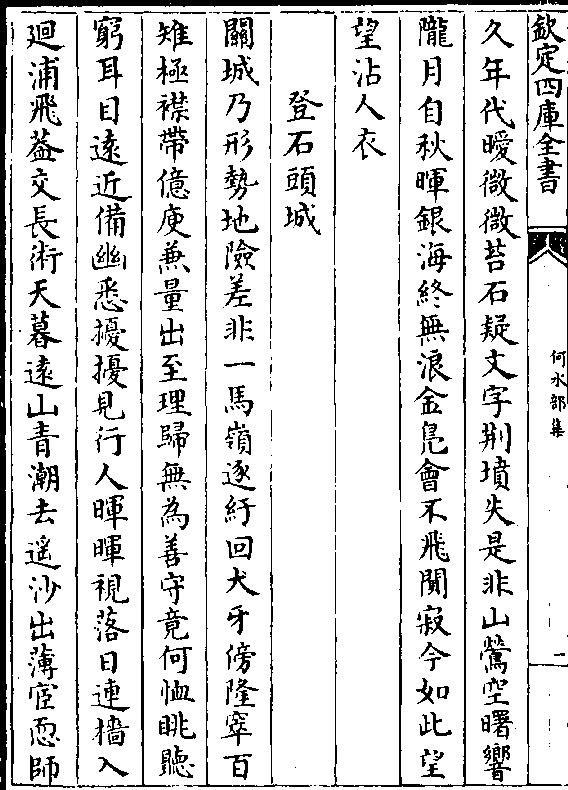 欽定四庫全書
何水部集
一
久年代曖微微苔石疑文字荆墳失是非山鶯空曙響
隴月自秋暉銀海終無浪金鳬會不飛閴寂今如此望
望沾人衣
登石頭城
關城乃形勢地險差非一馬嶺逐紆回犬牙傍隆窣百
雉極襟帶億庾兼量出至理歸無為善守竟何恤眺聽
窮耳目遠近備幽悉擾擾見行人暉暉視落日連檣入
廻浦飛葢交長術天暮遠山青潮去遥沙出薄宦恧師